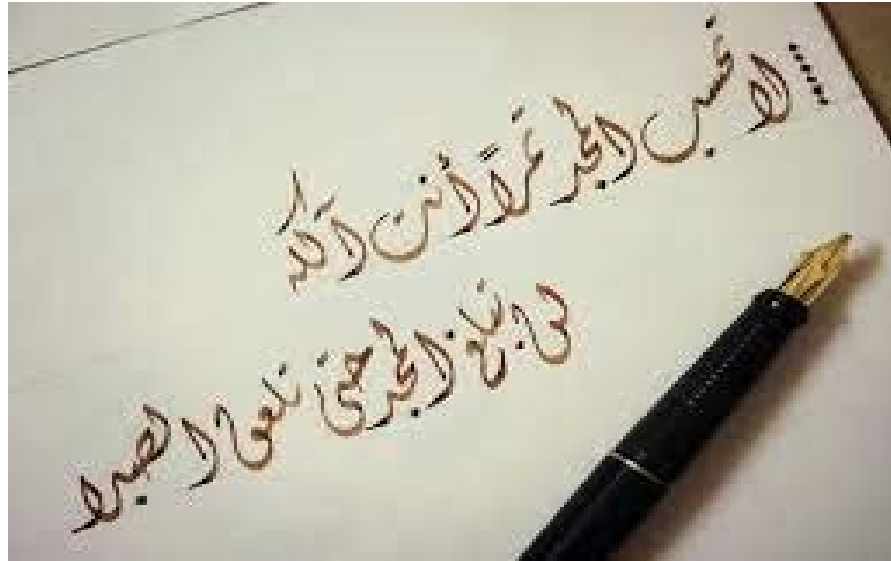 لا تحسب المجد تمراً أنت آكله
لن تبلغ المجد حتى تلعق الصبرا